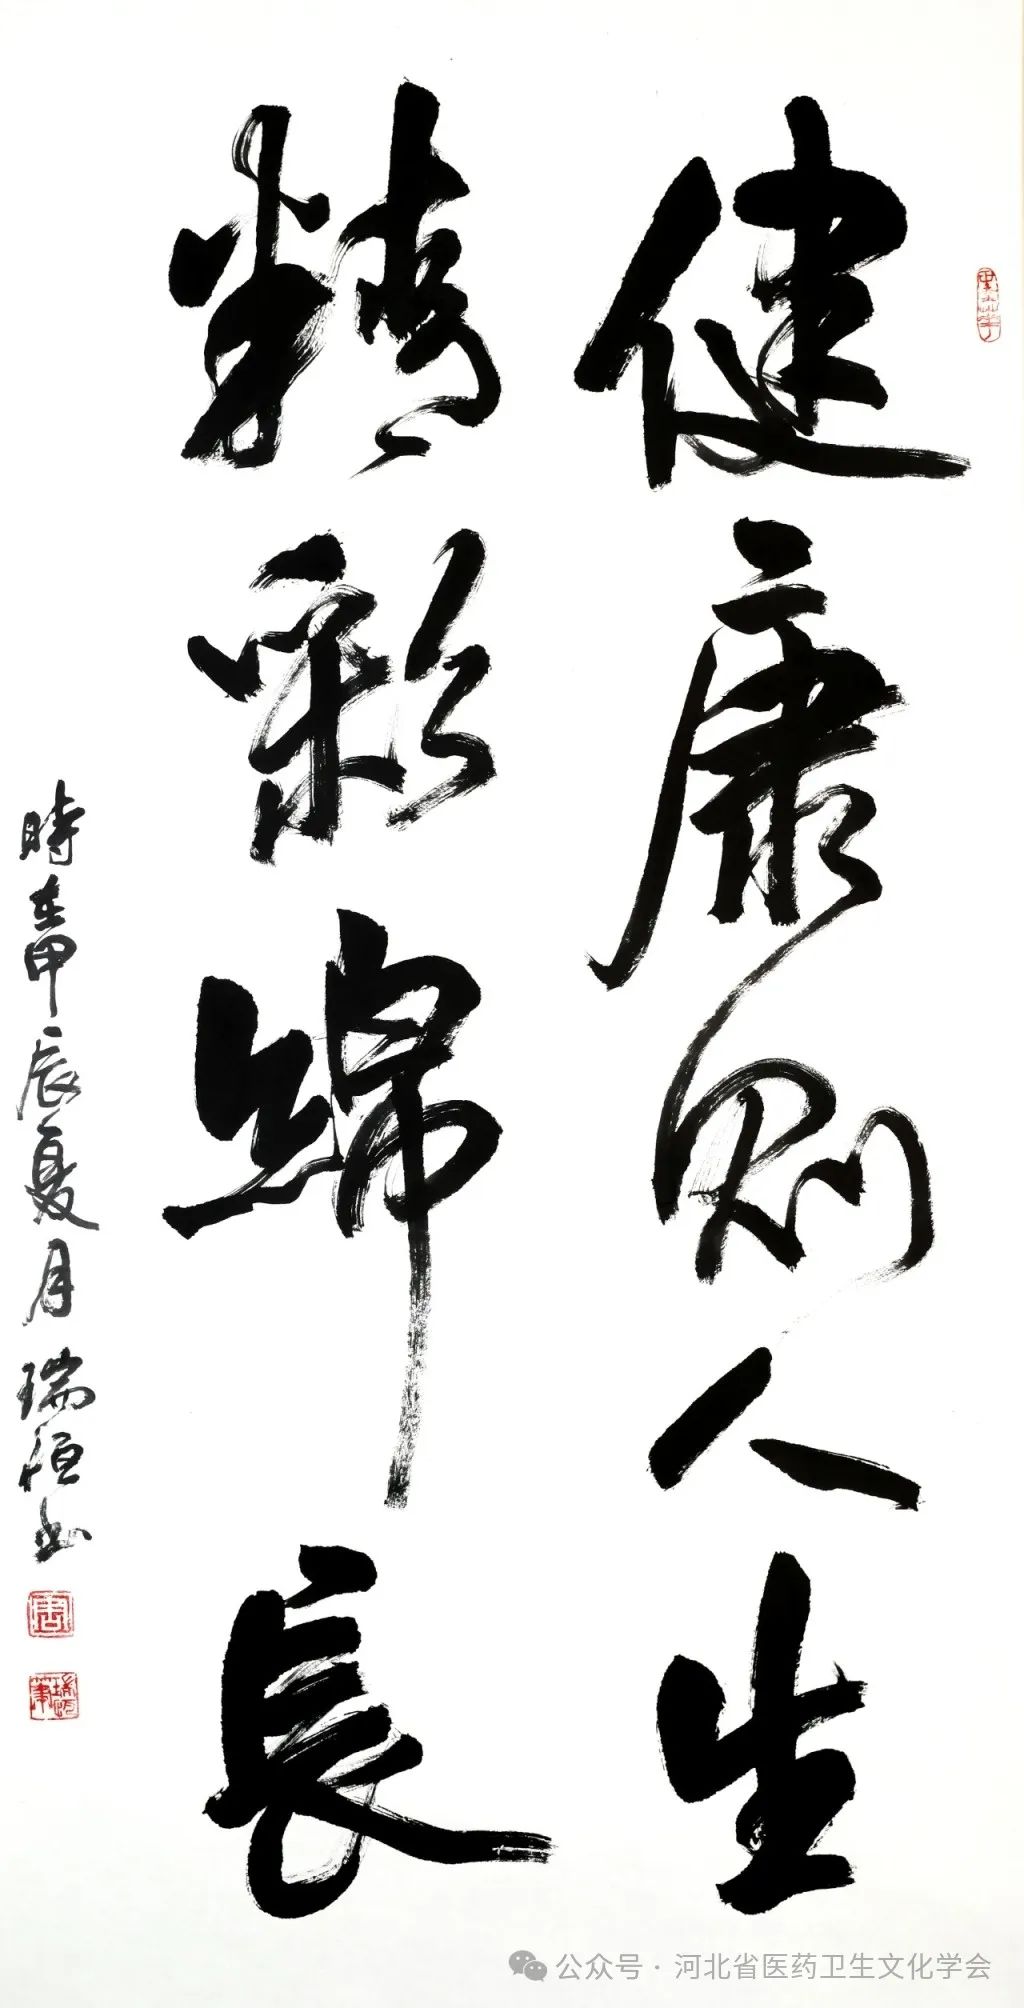 健康则人生
精彩綿長
時在甲辰夏月 瑞恒书
公众号 · 河北省医药卫生文化学会